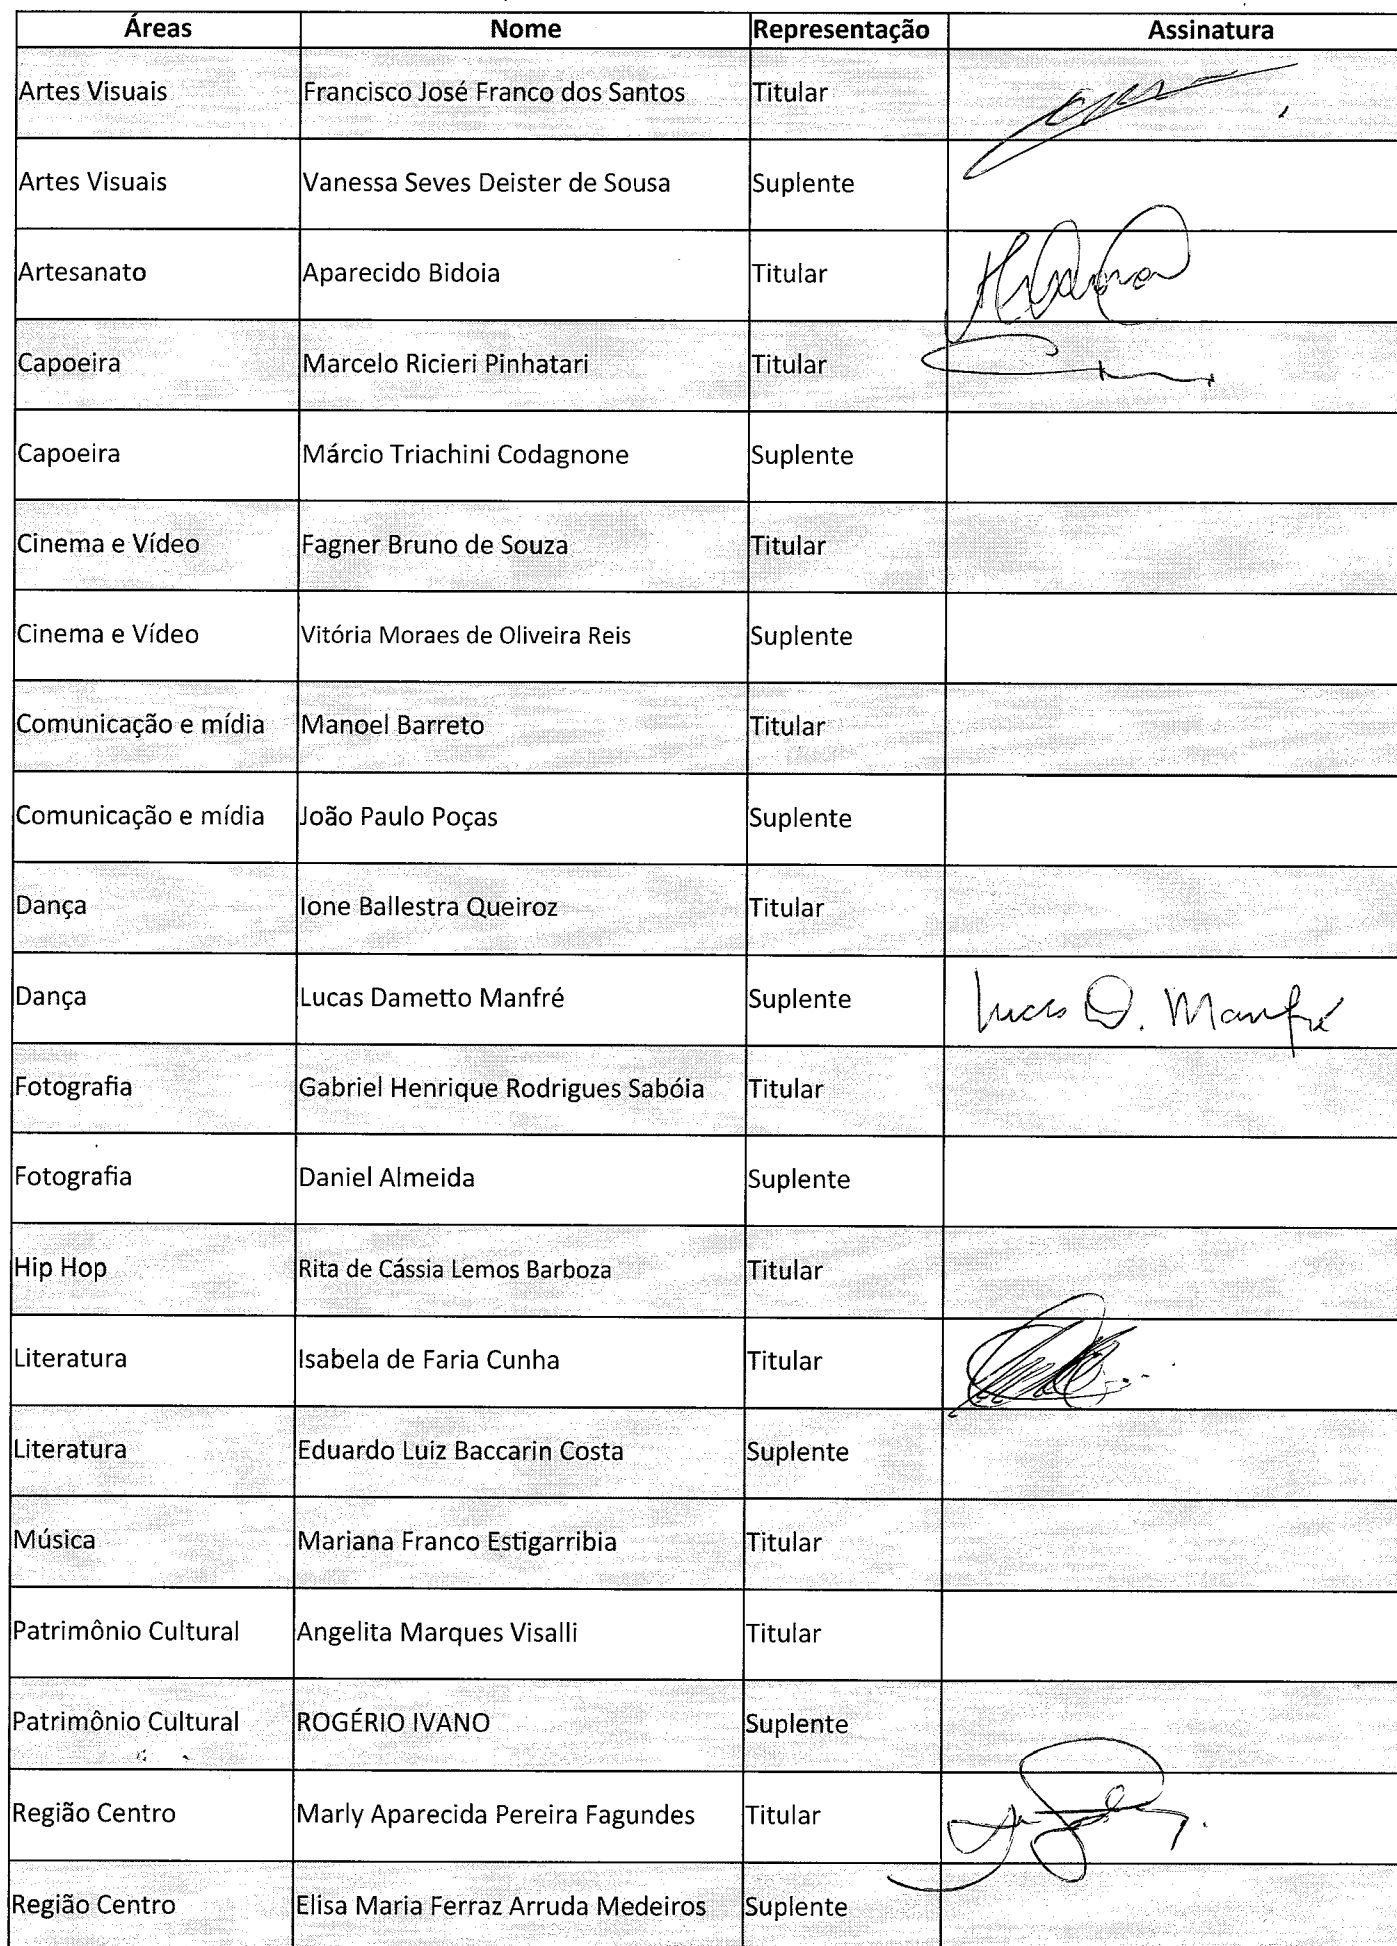 Áreas Nome Representação Assinatura
Artes Visuais Francisco José Franco dos Santos Titular
Artes Visuais Vanessa Seves Deister de Sousa Suplente
Artesanato Aparecido Bidoia Titular
Capoeira Marcelo Ricieri Pinhatari Titular
Capoeira Márcio Triachini Codagnone Suplente
Cinema e Vídeo Fagner Bruno de Souza Titular
Cinema e Vídeo Vitória Moraes de Oliveira Reis Suplente
Comunicação e mídia Manoel Barreto Titular
Comunicação e mídia João Paulo Poças Suplente
Dança Ione Ballestra Queiroz Titular
Dança Lucas Dametto Manfré Suplente Lucas D. Manfré
Fotografia Gabriel Henrique Rodrigues Sabóia Titular
Fotografia Daniel Almeida Suplente
Hip Hop Rita de Cássia Lemos Barboza Titular
Literatura Isabela de Faria Cunha Titular
Literatura Eduardo Luiz Baccarin Costa Suplente
Música Mariana Franco Estigarribia Titular
Patrimônio Cultural Angelita Marques Visalli Titular
Patrimônio Cultural ROGÉRIO IVANO Suplente
Região Centro Marly Aparecida Pereira Fagundes Titular
Região Centro Elisa Maria Ferraz Arruda Medeiros Suplente